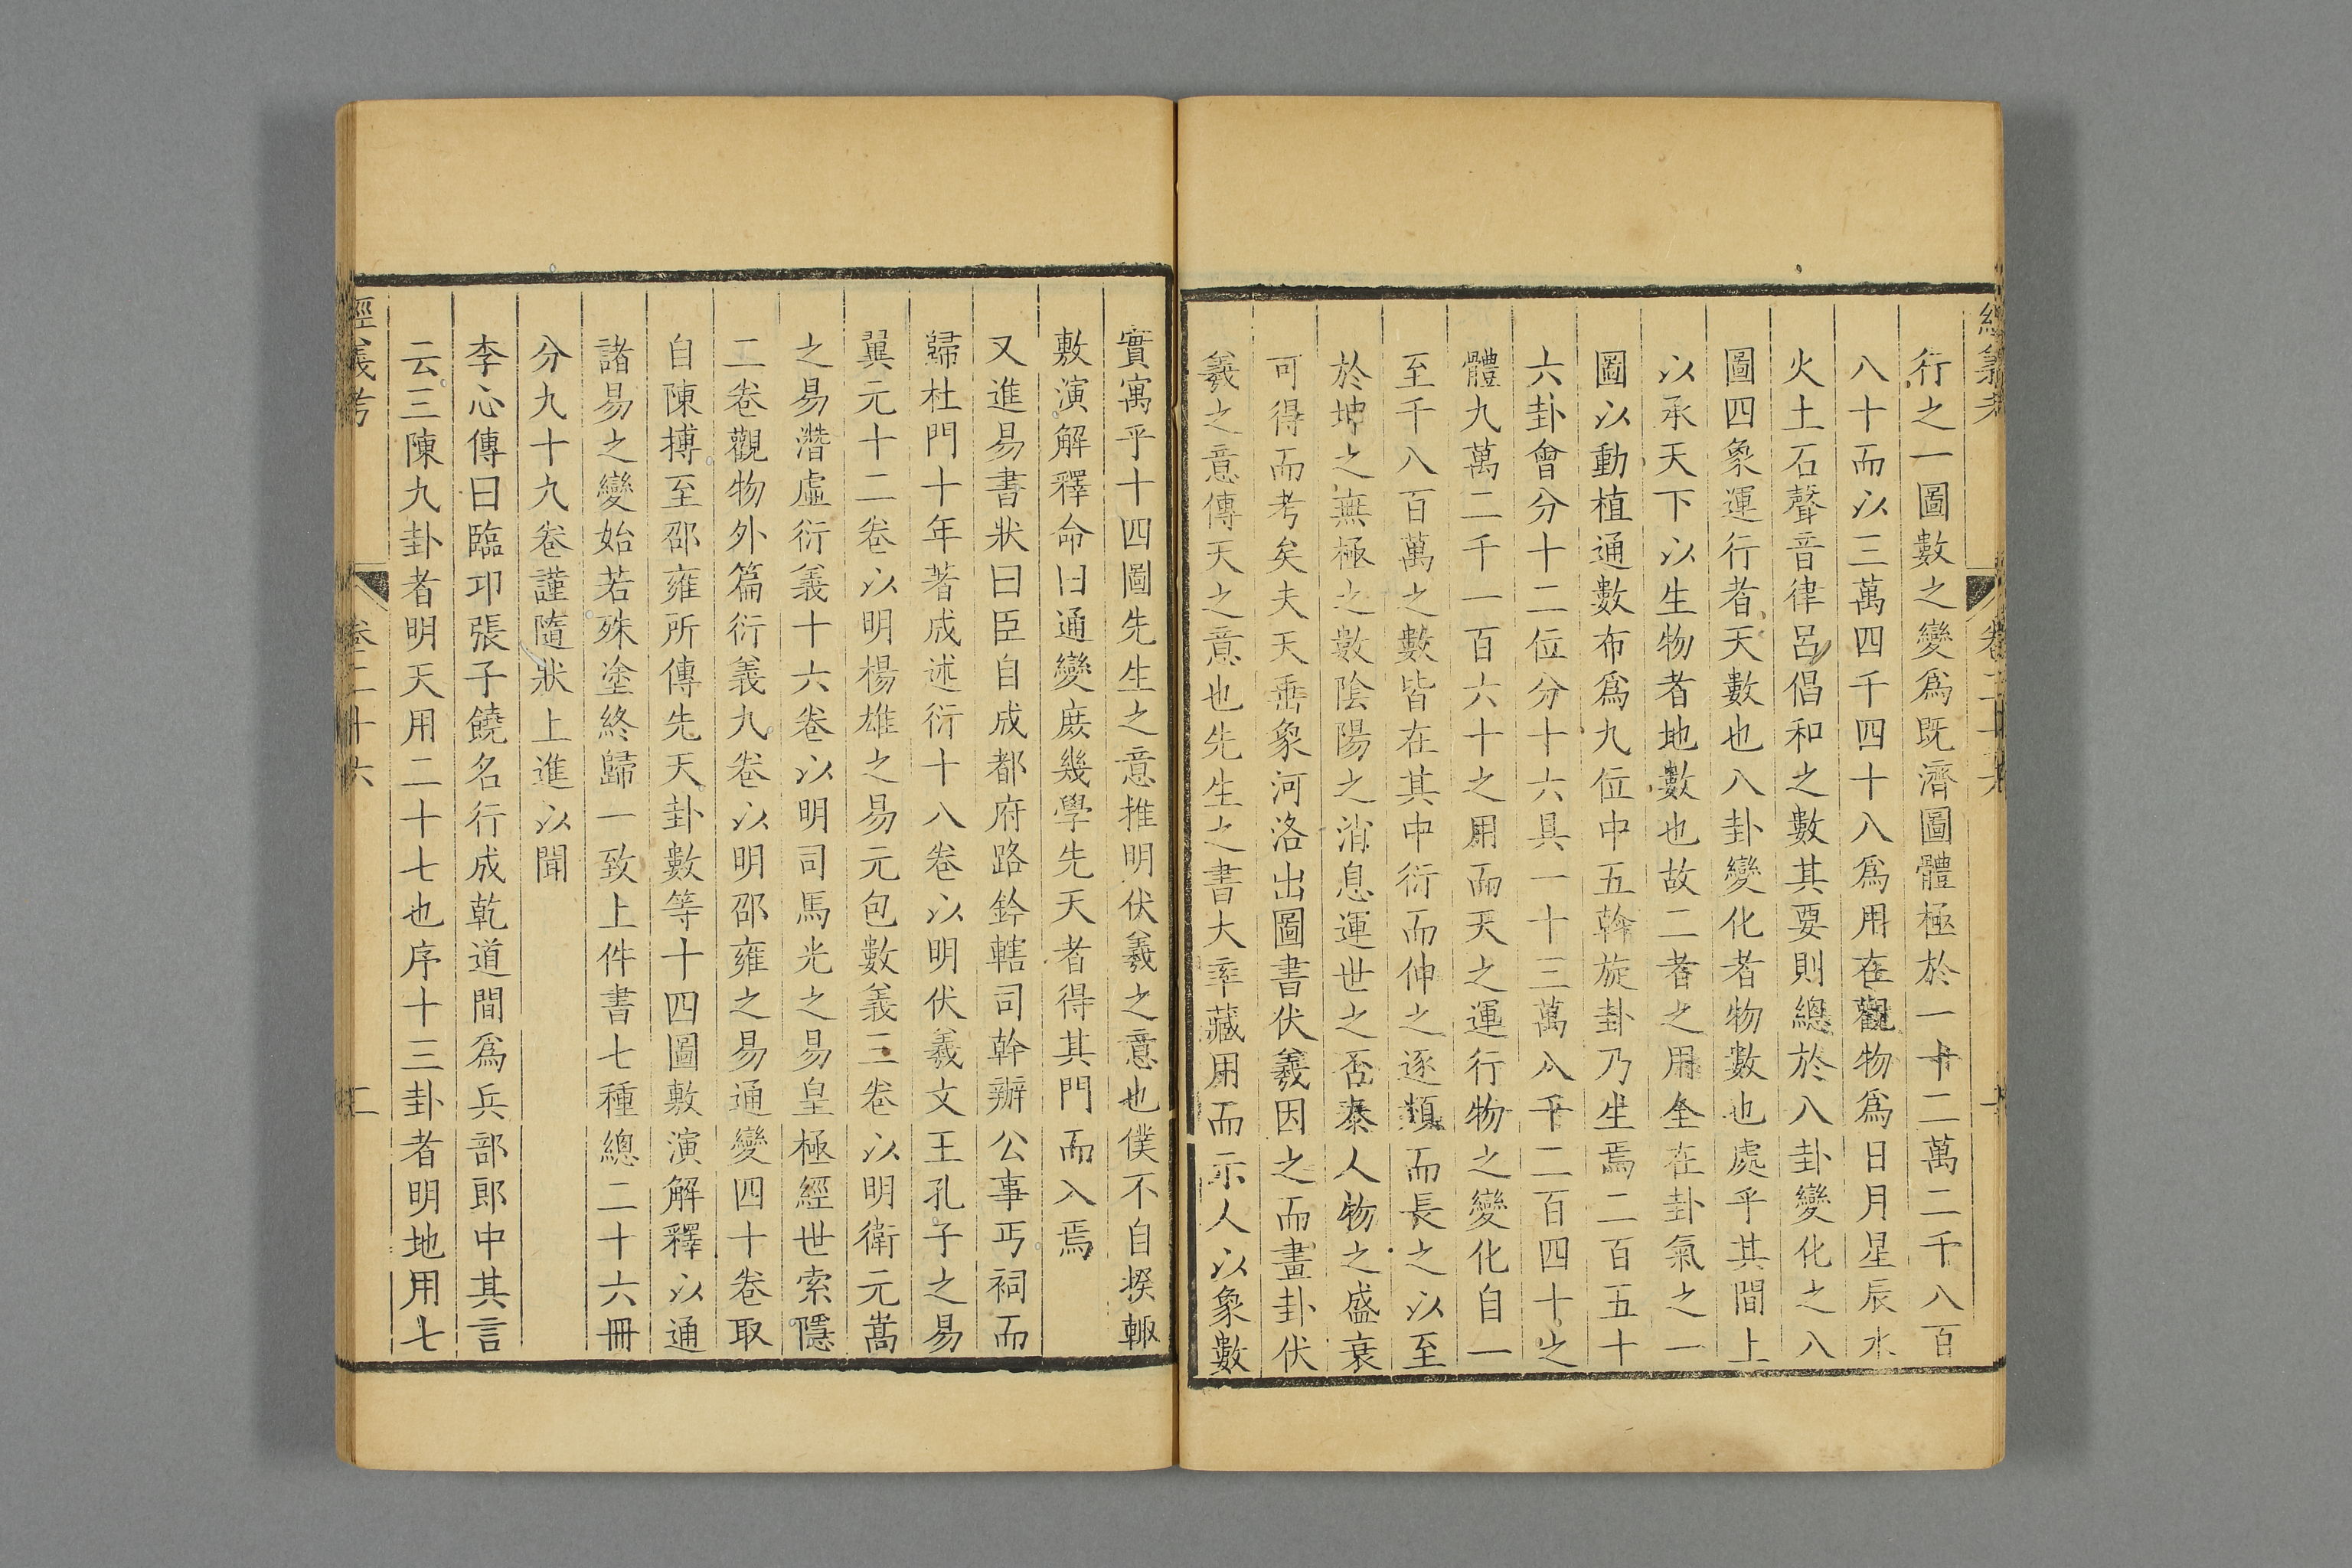 經義考 卷二十六 十
行之一圖數之變爲既濟圖體極於一十二萬二千八百
八十而以三萬四千四十八爲用在觀物爲日月星辰水
火土石聲音律呂倡和之數其要則總於八卦變化之八
圖四象運行者天數也八卦變化者物數也處乎其間上
以承天下以生物者地數也故二者之用全在卦氣之一
圖以動植通數布爲九位中五斡旋卦乃生焉二百五十
六卦會分十二位分十六具一十三萬八千二百四十之
體九萬二千一百六十之用而天之運行物之變化自一
至千八百萬之數皆在其中衍而伸之逐類而長之以至
於坤之無極之數陰陽之消息運世之否泰人物之盛衰
可得而考矣夫天垂象河洛出圖書伏羲因之而畫卦伏
羲之意傳天之意也先生之書大率藏用而示人以象數
實寓乎十四圖先生之意推明伏羲之意也僕不自揆輙
敷演解釋命曰通變庻幾學先天者得其門而入焉
又進易書狀曰臣自成都府路鈐轄司幹辦公事丐祠而
歸杜門十年著成述衍十八卷以明伏羲文王孔子之易
翼元十二卷以明楊雄之易元包數義三卷以明衛元嵩
之易潛虛衍義十六卷以明司馬光之易皇極經世索隱
二卷觀物外篇衍義九卷以明邵雍之易通變四十卷取
自陳摶至邵雍所傳先天卦數等十四圖敷演解釋以通
諸易之變始若殊塗終歸一致上件書七種總二十六冊
分九十九卷謹隨狀上進以聞
李心傳曰臨邛張子饒名行成乾道間爲兵部郎中其言
云三陳九卦者明天用二十七也序十三卦者明地用七
經義考 卷二十六 二